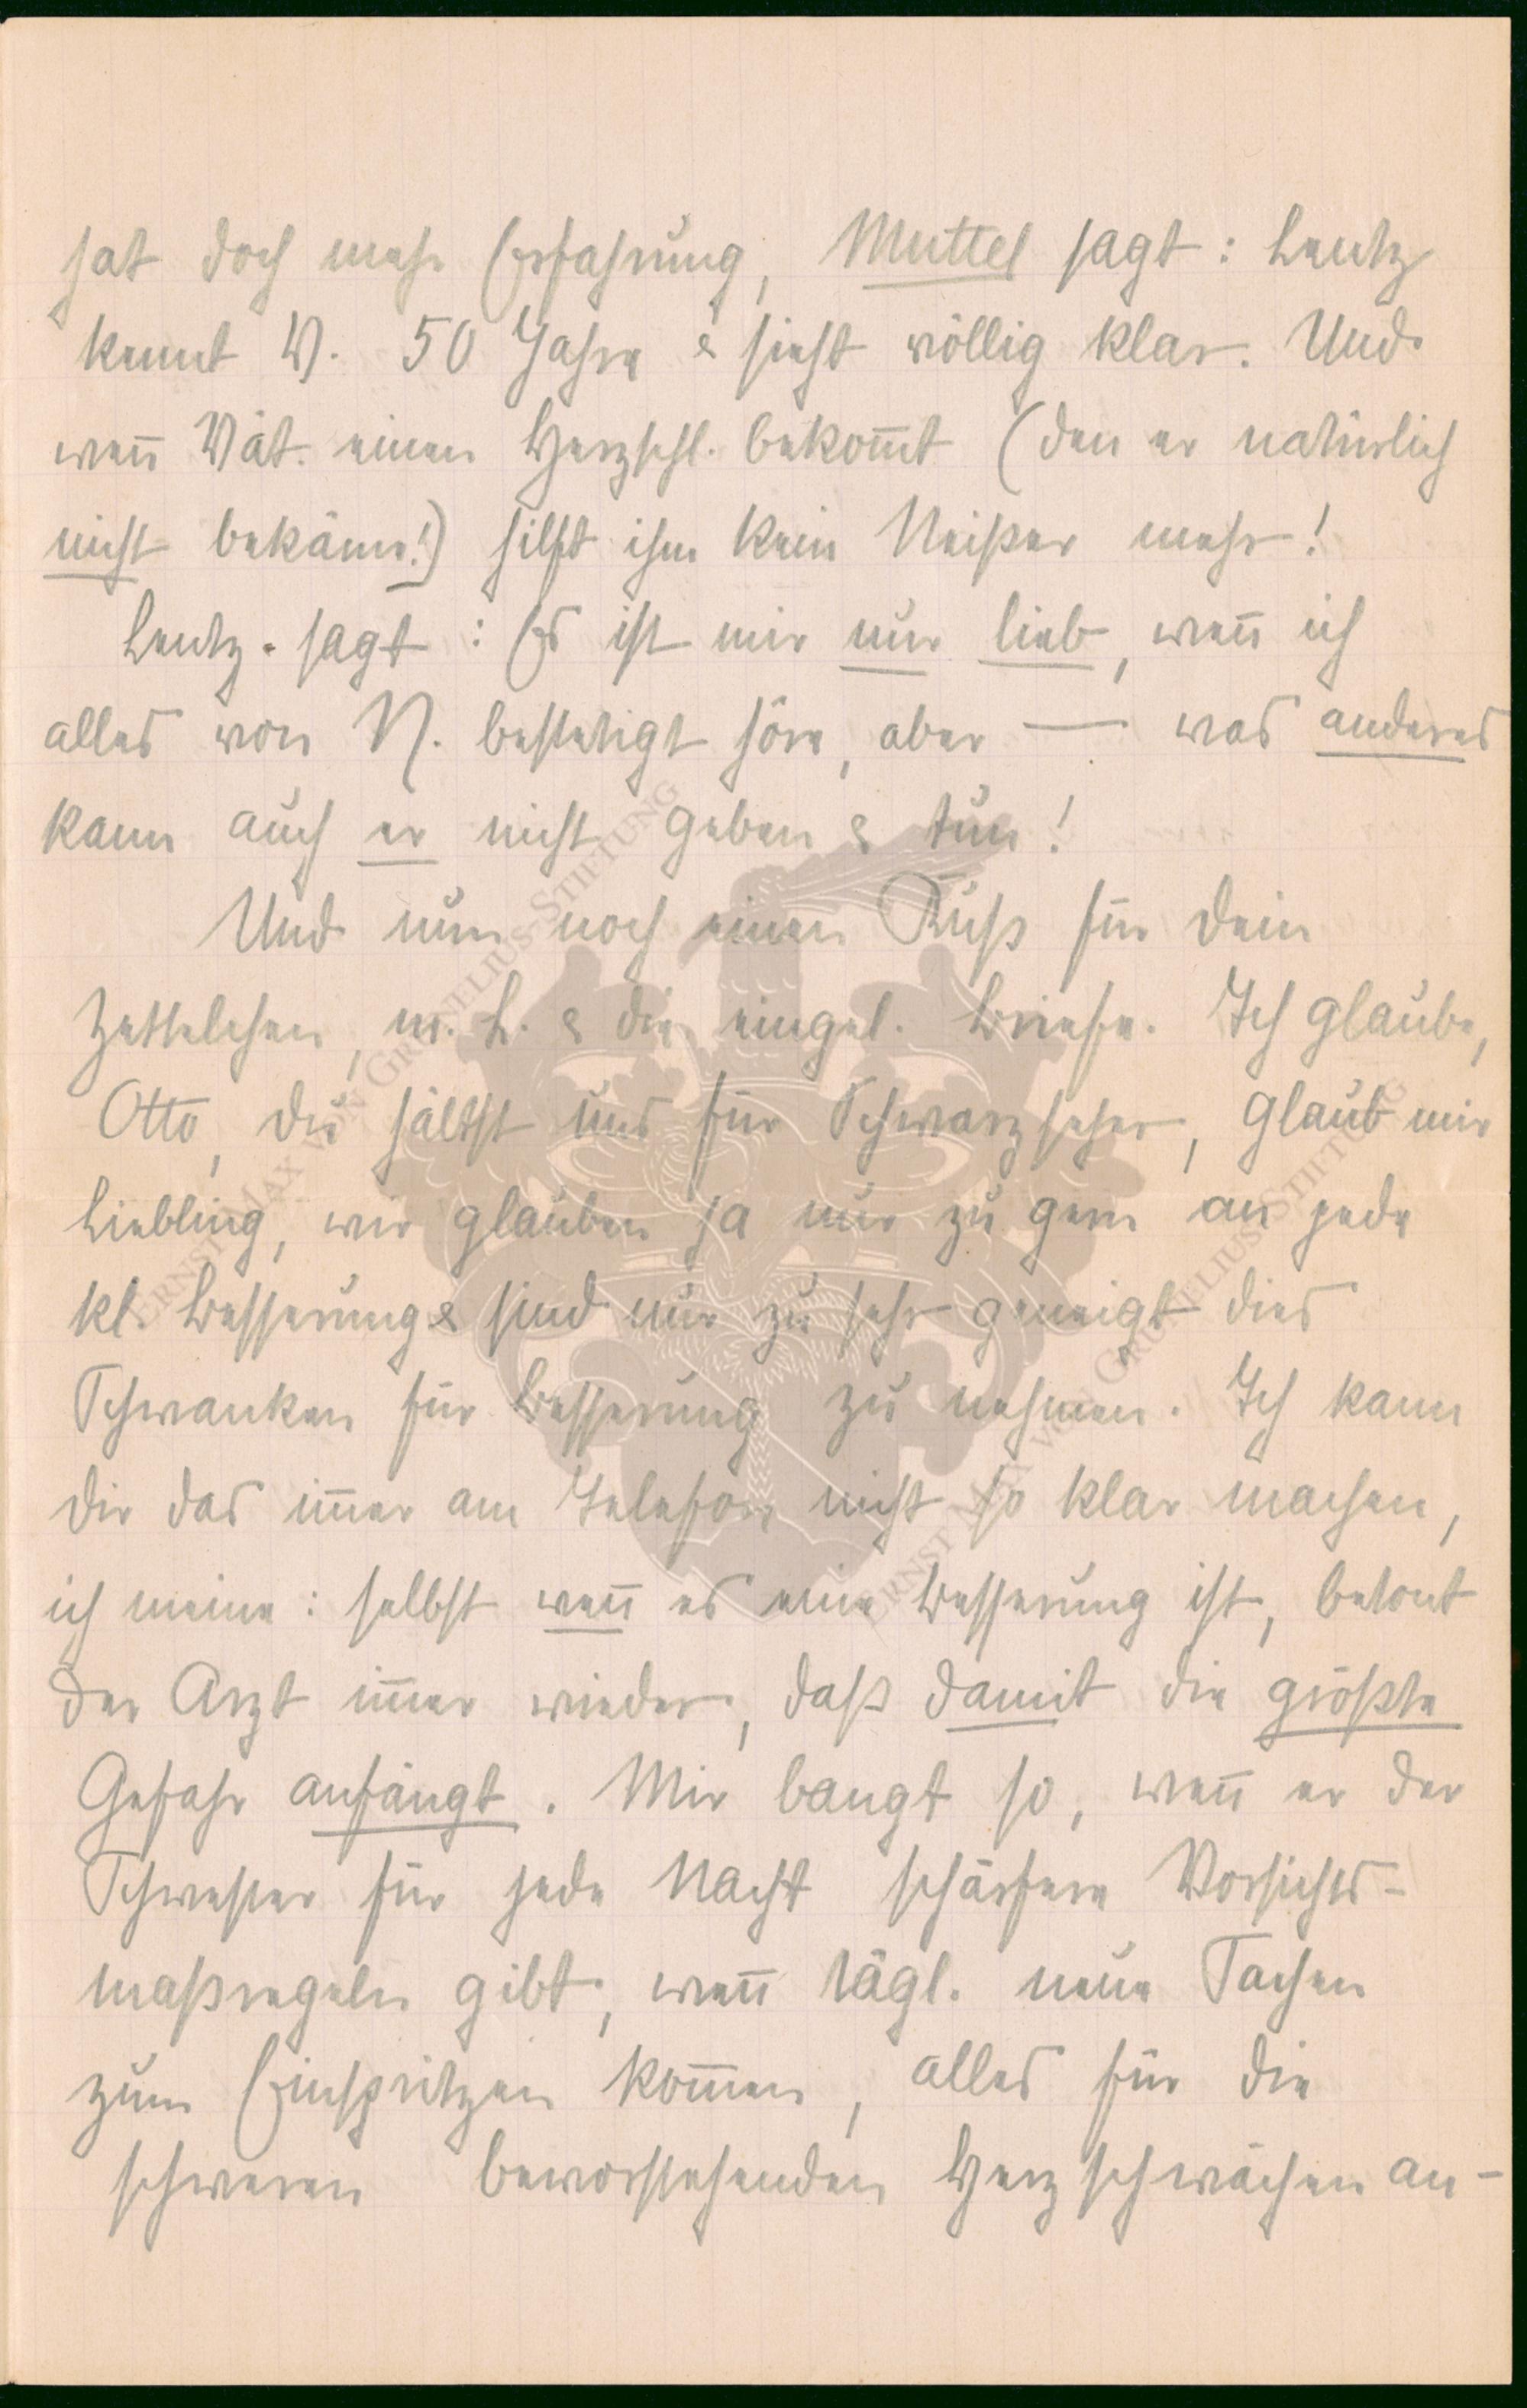 hat doch mehr Erfahrung, Muttel sagt: Lentz
kennt V. 50 Jahre & sieht völlig klar. Und
weñ Vät. einen Herzschl. bekom̃t (den er natürlich
nicht bekäme!) hilft ihm kein Neißer mehr!
Lentz. sagt: Es ist mir nur lieb, weñ ich
alles von N. bestetigt höre, aber — was anderes
kann auch er nicht geben & tun!
Und nun noch einen Kuß für dein
Zettelchen, m. L. & die eingel. Briefe. Ich glaube,
Otto, du hältst uns für Schwarzseher, glaub mir
Liebling, wir glauben ja nur zu gern an jede
kl. Besserung & sind nur zu sehr geneigt dies
Schwanken für Besserung zu nehmen. Ich kann
dir das im̃er am Telefon nicht so klar machen,
ich meine: selbst weñ es eine Besserung ist, betont
der Arzt im̃er wieder, daß damit die größte
Gefahr anfängt. Mir bangt so, weñ er der
Schwester für jede Nacht schärfere Vorsichts-
maßregeln gibt, weñ tägl. neue Sachen
zum Einspritzen kom̃en, alles für die
schweren bevorstehenden Herzschwächen an-
ERNST MAX VON GRUNELIUS-STIFTUNG
ERNST MAX VON GRUNELIUS-STIFTUNG